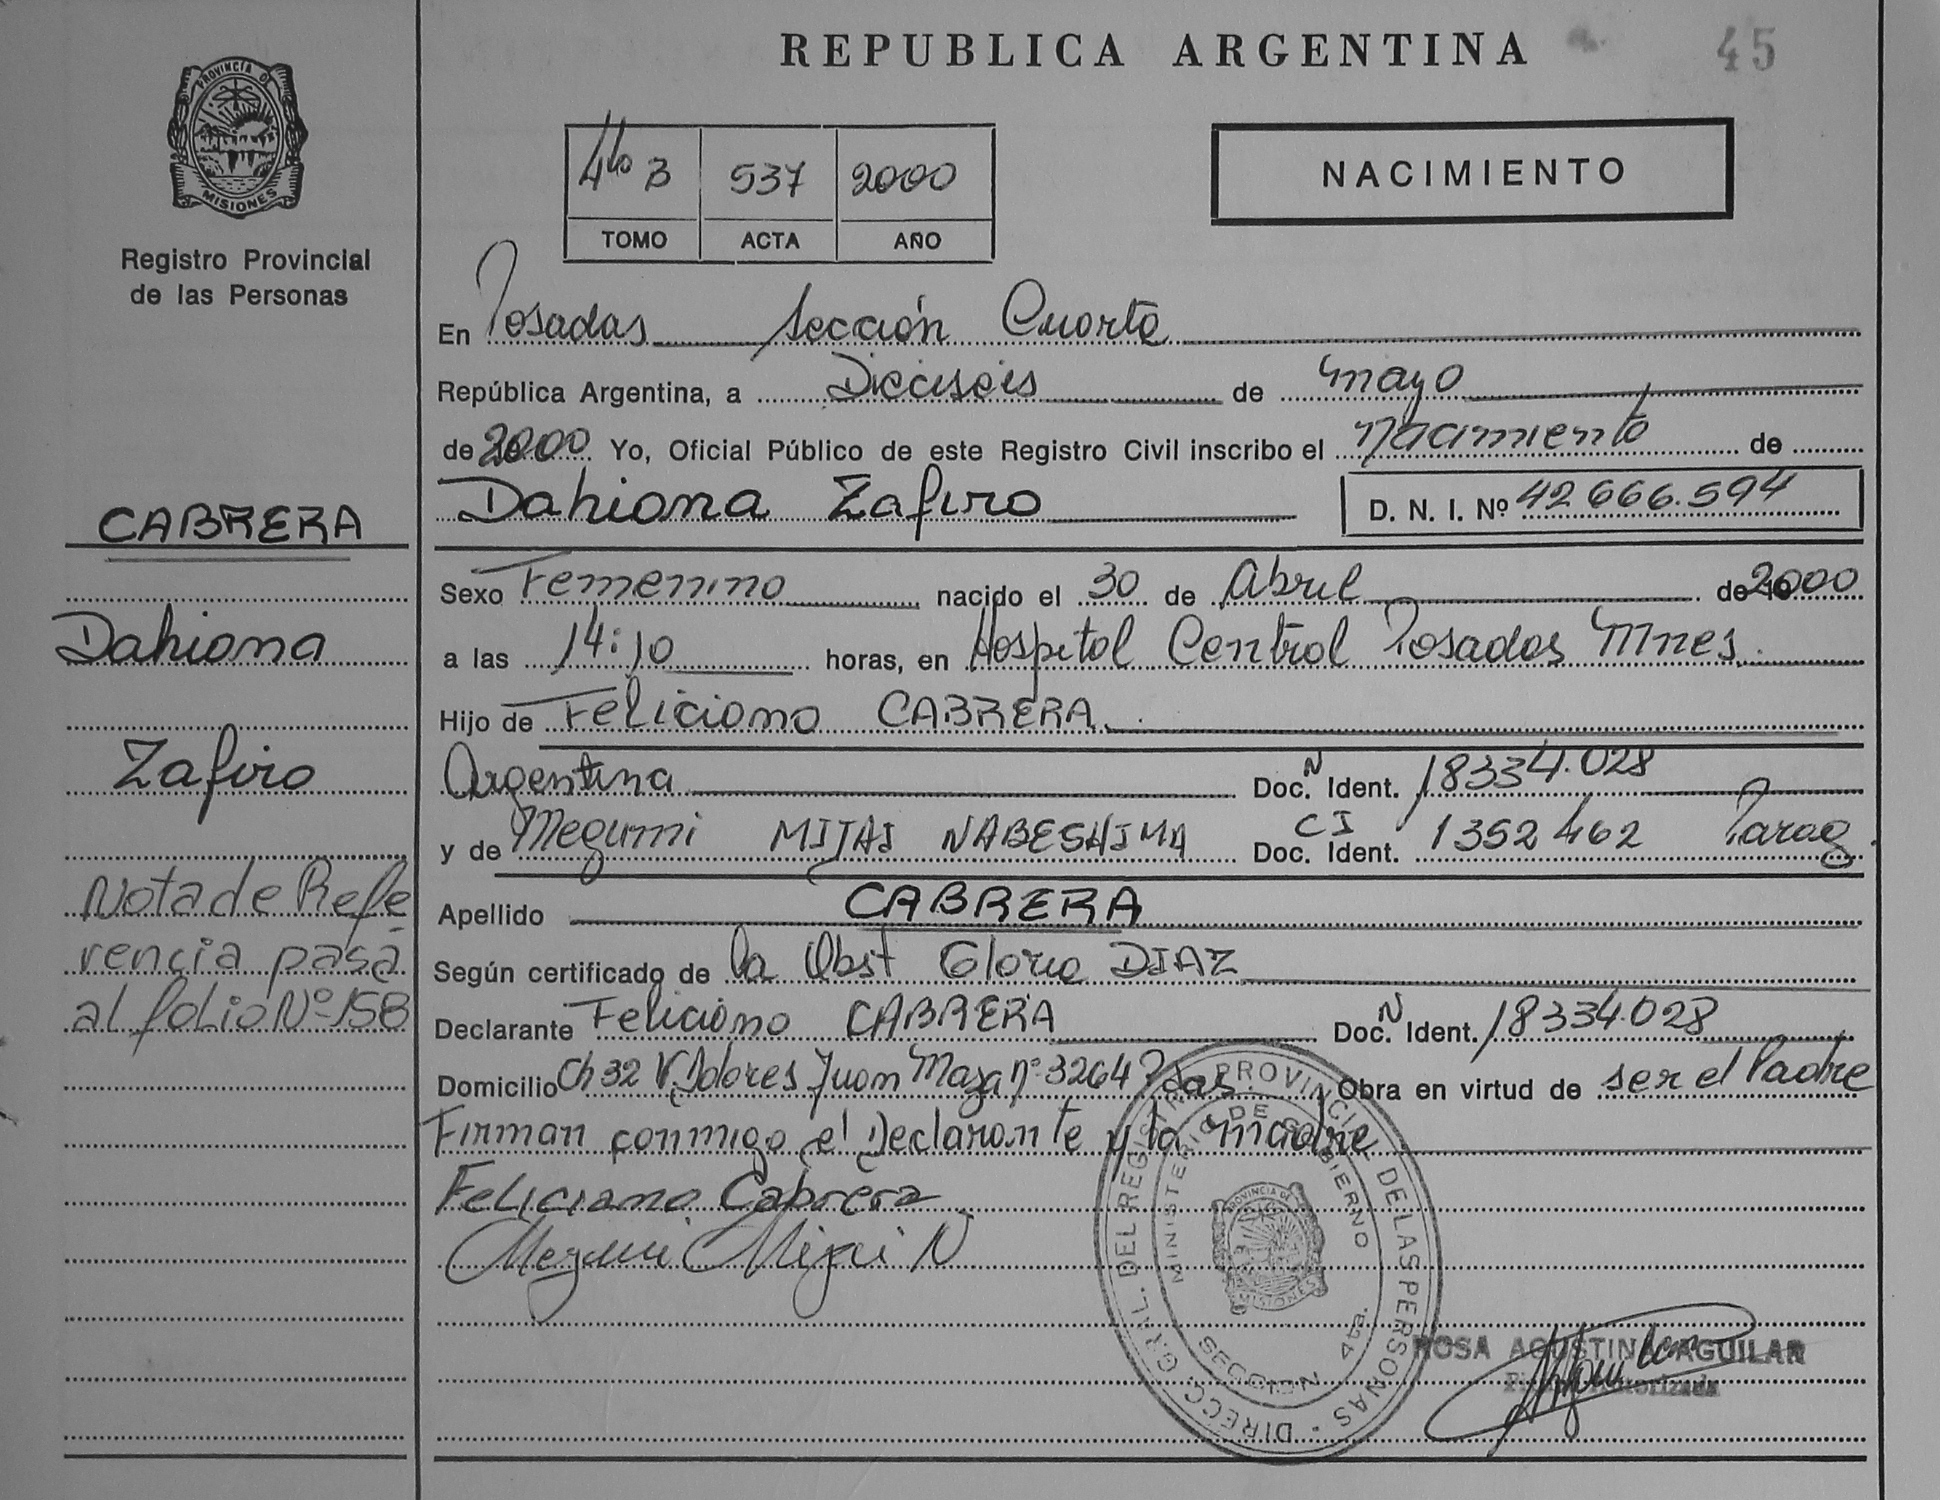 REPUBLICA ARGENTINA
45
PROVINCIA DE
MISIONES
Registro Provincial
de las Personas
4to B 537 2000
TOMO ACTA AÑO
NACIMIENTO
En Posadas Sección Cuarta
República Argentina, a Dieciseis de mayo
de 2000 Yo, Oficial Público de este Registro Civil inscribo el Nacimiento de
Dahiana Zafiro D. N. I. Nº 42666.594
CABRERA
Dahiana
Zafiro
Nota de Refe
rencia pasa
al folio Nº 158
Sexo Femenino nacido el 30 de Abril de 2000
a las 14:10 horas, en Hospital Central Posadas Mnes.
Hijo de Feliciano CABRERA
Argentina Doc. N Ident. 18334.028
y de Megumi MIJAI NABESHIMA CI Doc. Ident. 1352462 Parag
Apellido CABRERA
Según certificado de la Obst Gloria DIAZ
Declarante Feliciano CABRERA Doc. N Ident. 18334.028
Domicilio Ch 32 V. Dolores Juan Maza nº 3264 Pdas. Obra en virtud de ser el Padre
Firman conmigo el Declarante y la madre
Feliciano Cabrera
Megumi Mijai N
DIRECC. GRAL. DEL REGISTRO PROVINCIAL DE LAS PERSONAS
MINISTERIO DE GOBIERNO
PROVINCIA DE
MISIONES
SECCION 4ta.
ROSA AGUSTINA AGUILAR
Firma Autorizada